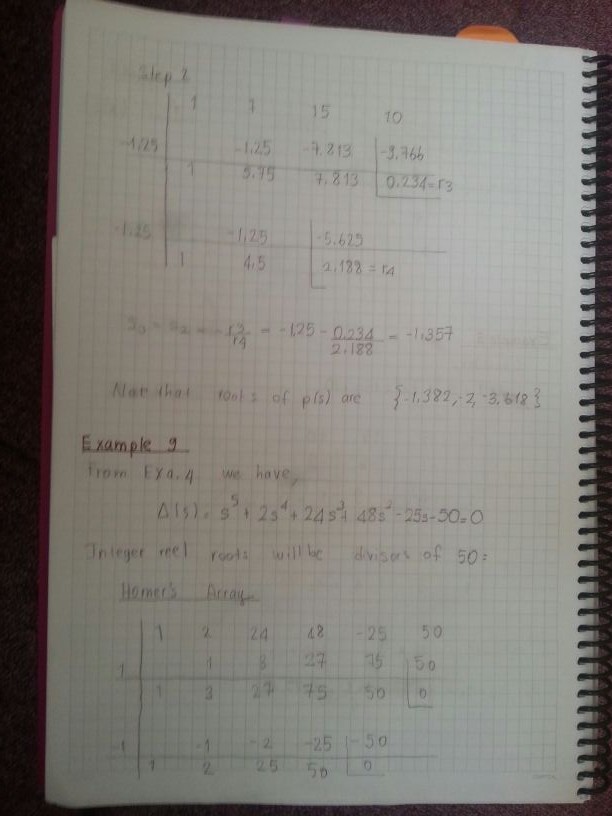 Step 2
1 7 15 10
-1.25 -1.25 -7.213 -9.766
1 5.75 7.813 0.234=r3
-1.25 -1.25 -5.625
1 4.5 2.188 = r4
s3 = s2 = -r3/r4 = -1.25 - 0.234/2.188 = -1.357
Note that roots of p(s) are {-1.382, -2, -3.618}
Example 9
From Exa. 4 we have,
Δ(s) = s^5 + 2s^4 + 24s^3 + 48s^2 - 25s - 50 = 0
Integer reel roots will be divisors of 50:
Horner's Array
1 2 24 48 -25 50
1 1 3 27 75 50
1 3 27 75 50 0
-1 -1 -2 -25 -50
1 2 25 50 0